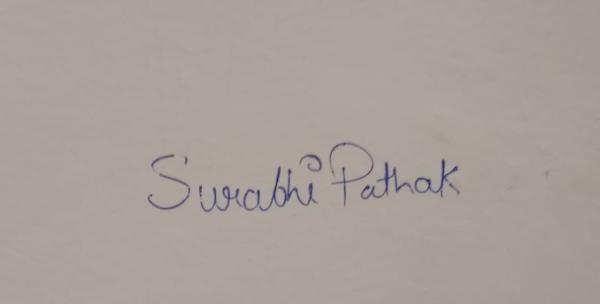 Surabhi Pathak